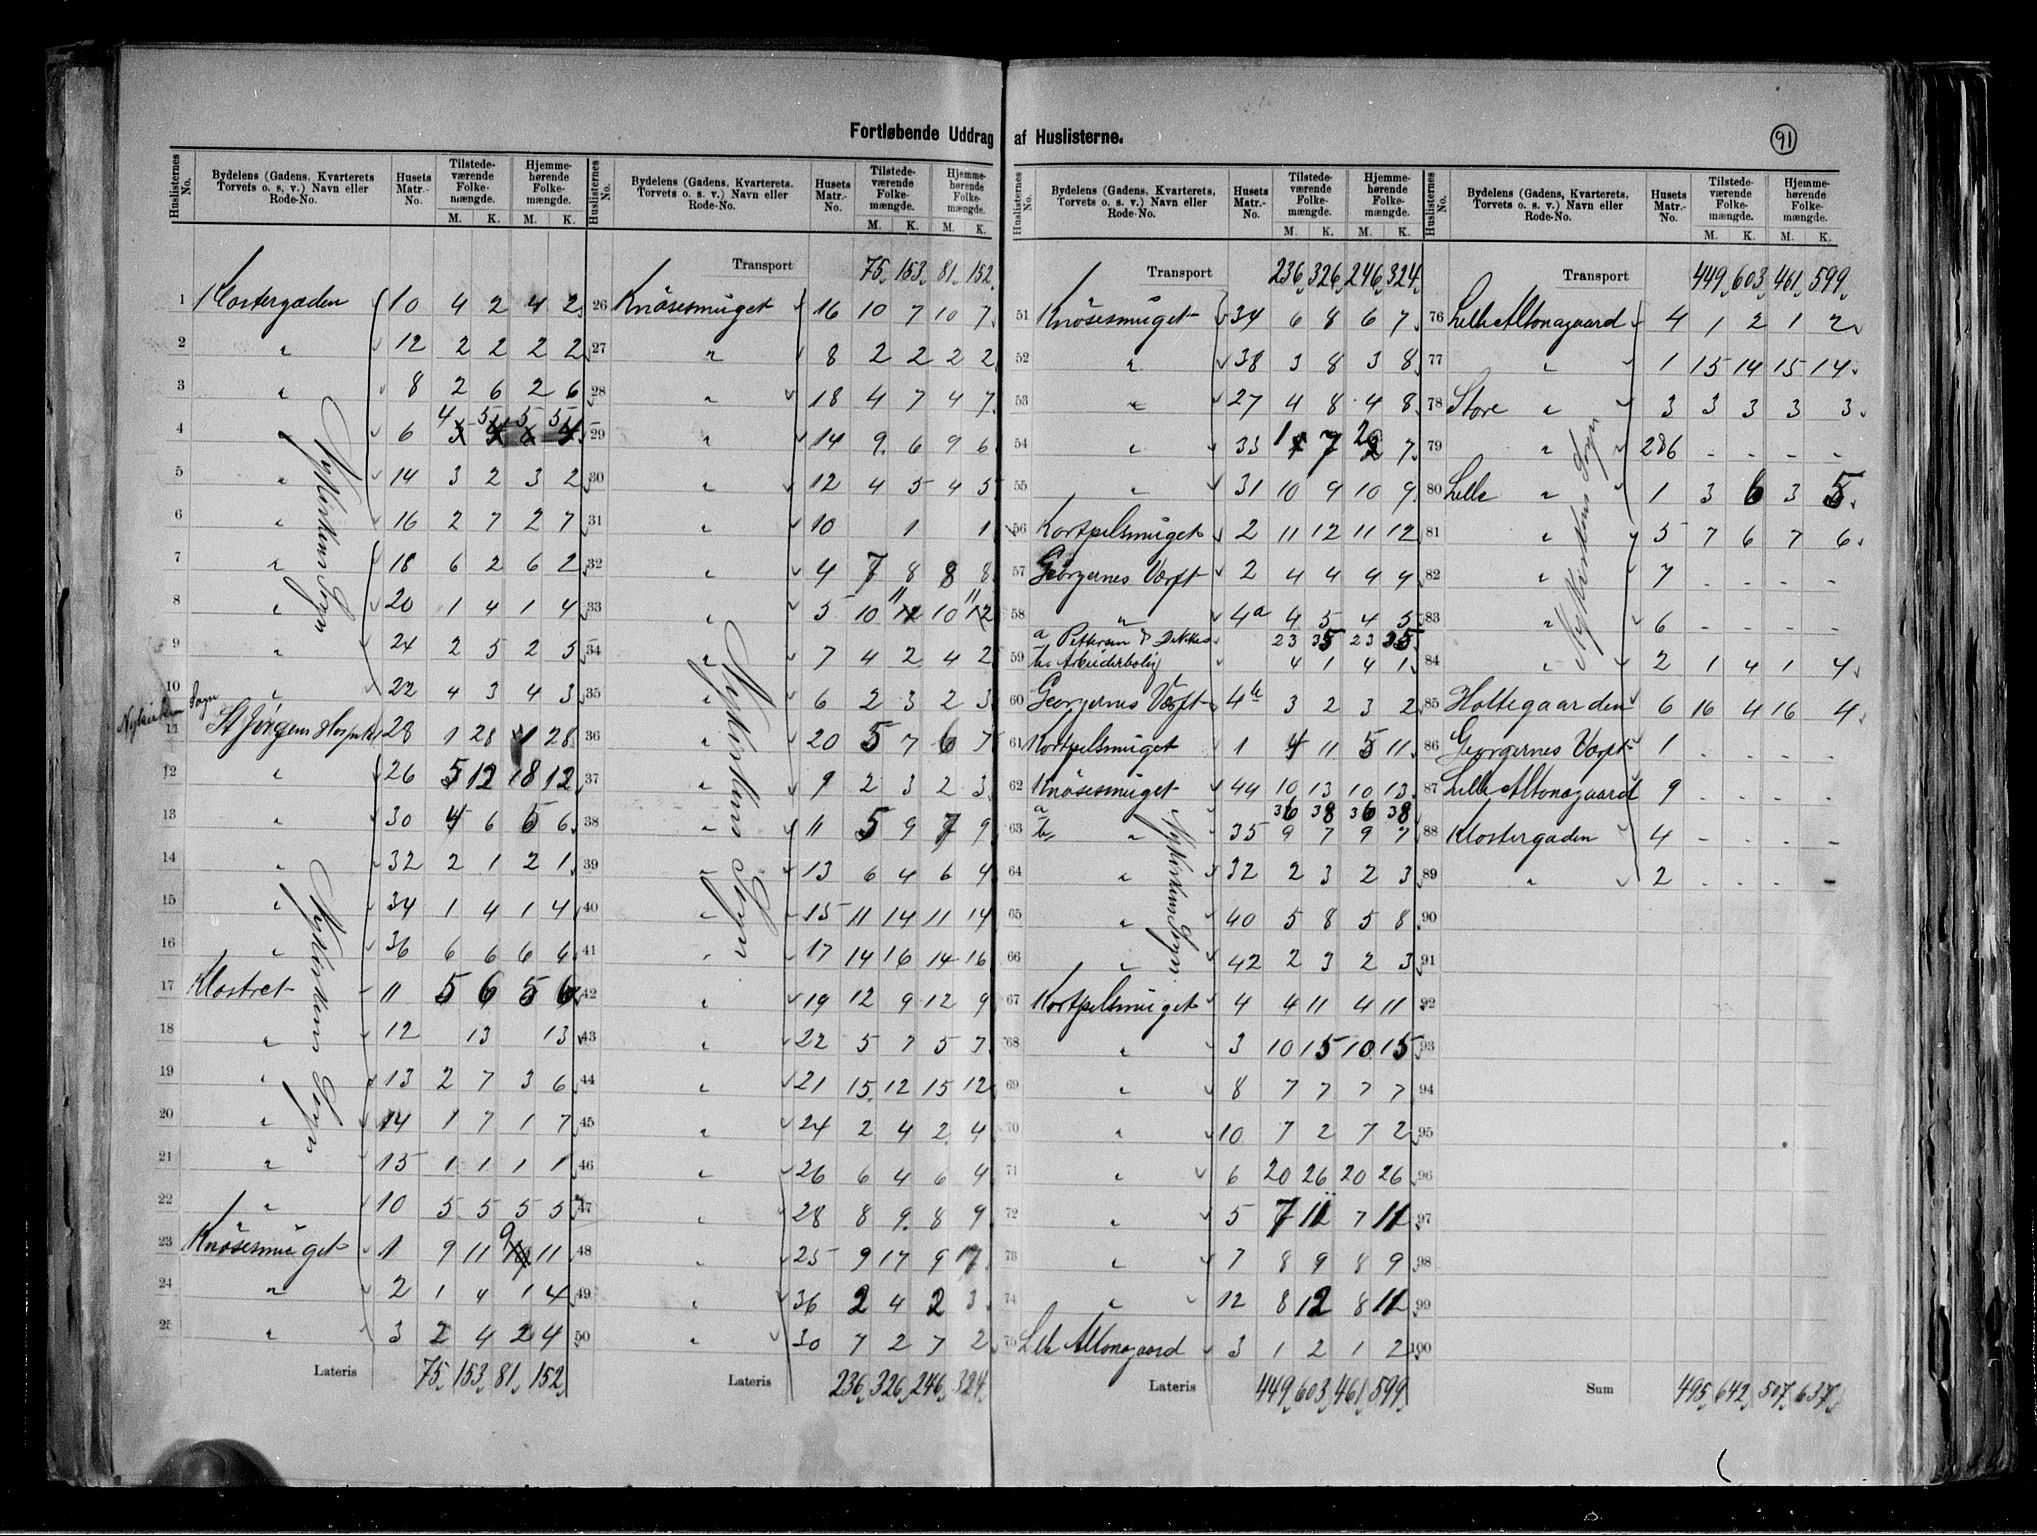 Fortløbende Uddrag af Huslisterne.
91
Huslisternes No. Bydelens (Gadens, Kvarterets Torvets o. s. v.) Navn eller Rode-No. Husets Matr.-No. Tilstede-værende Folke-mængde. M. K. Hjemme-hørende Folke-mængde. M. K.
1 Klostergaden 10 4 2 4 2
2 " 12 2 2 2 2
3 " 8 2 6 2 6
4 " 6 4 5 5 5
5 " 14 3 2 3 2
6 " 16 2 7 2 7
7 " 18 6 2 6 2
8 " 20 1 4 1 4
9 " 24 2 5 2 5
10 " 22 4 3 4 3
Nykirken Sogn
11 St Jörgens Hospital 28 1 28 1 28
12 " 26 5 12 8 12
13 " 30 4 6 5 6
14 " 32 2 1 2 1
15 " 34 1 4 1 4
16 " 36 6 6 6 6
17 Klostret 11 5 6 5 6
18 " 12 13 13
19 " 13 2 7 3 6
20 " 14 1 7 1 7
21 " 15 1 1 1 1
22 " 10 5 5 5 5
23 Knösesmuget 1 9 11 9 11
24 " 2 1 4 1 4
25 " 3 2 4 2 4
Nykirkens Sogn
Nykirkens Sogn
Lateris 75 153 81 152
Huslisternes No. Bydelens (Gadens, Kvarterets, Torvets o. s. v.) Navn eller Rode-No. Husets Matr.-No. Tilstede-værende Folke-mængde. M. K. Hjemme-hørende Folke-mængde. M. K.
Transport 75 153 81 152
26 Knösesmuget 16 10 7 10 7
27 " 8 2 2 2 2
28 " 18 4 7 4 7
29 " 14 9 6 9 6
30 " 12 4 5 4 5
31 " 10 1 1
32 " 4 7 8 8 8
33 " 5 10 11 10 11
34 " 7 4 2 4 2
35 " 6 2 3 2 3
36 " 20 5 7 6 7
37 " 9 2 3 2 3
38 " 11 5 9 7 9
39 " 13 6 4 6 4
40 " 15 11 14 11 14
41 " 17 14 16 14 16
42 " 19 12 9 12 9
43 " 22 5 7 5 7
44 " 21 15 12 15 12
45 " 24 2 4 2 4
46 " 26 6 4 6 4
47 " 28 8 9 8 9
48 " 25 9 17 9 17
49 " 36 2 4 2 3
50 " 30 7 2 7 2
Nykirkens Sogn
Lateris 236 326 246 324
Huslisternes No. Bydelens (Gadens, Kvarterets, Torvets o. s. v.) Navn eller Rode-No. Husets Matr.-No. Tilstede-værende Folke-mængde. M. K. Hjemme-hørende Folke-mængde. M. K.
Transport 236 326 246 324
51 Knösesmuget 34 6 8 6 7
52 " 38 3 8 3 8
53 " 27 4 8 4 8
54 " 33 1 7 2 7
55 " 31 10 9 10 9
56 Kortpelsmuget 2 11 12 11 12
57 Georgernes Værft 2 4 4 4 4
58 " 4a 4 5 4 5
a Pettersen & Dekkes 23 35 23 35
59 b Arbeiderbolig 4 1 4 1
60 Georgernes Værft 4b 3 2 3 2
61 Kortpelsmuget 1 4 11 5 11
62 Knösesmuget 44 10 13 10 13
a 36 38 36 38
63 b " 35 9 7 9 7
64 " 32 2 3 2 3
65 " 40 5 8 5 8
66 " 42 2 3 2 3
67 Kortpelsmuget 4 4 11 4 11
68 " 3 10 15 10 15
69 " 8 7 7 7 7
70 " 10 7 2 7 2
71 " 6 20 26 20 26
72 " 5 7 11 7 11
73 " 7 8 9 8 9
74 " 12 8 12 8 11
75 Lille Altonagaard 3 1 2 1 2
Nykirkens Sogn
Lateris 449 603 461 599
Huslisternes No. Bydelens (Gadens, Kvarterets, Torvets o. s. v.) Navn eller Rode-No. Husets Matr.-No. Tilstede-værende Folke-mængde. M. K. Hjemme-hørende Folke-mængde. M. K.
Transport 449 603 461 599
76 Lille Altonagaard 4 1 2 1 2
77 " 1 15 14 15 14
78 Store " 3 3 3 3 3
79 " 286 - - - -
80 Lille " 1 3 6 3 5
81 " 5 7 6 7 6
82 " 7 - - - -
83 " 6 - - - -
84 " 2 1 4 1 4
85 Holtegaarden 6 16 4 16 4
86 Georgernes Værft 1 - - - -
87 Lille Altonagaard 9 - - - -
88 Klostergaden 4 - - - -
89 " 2 - - - -
90
91
92
93
94
95
96
97
98
99
100
Nykirkens Sogn
Sum 495 642 507 637